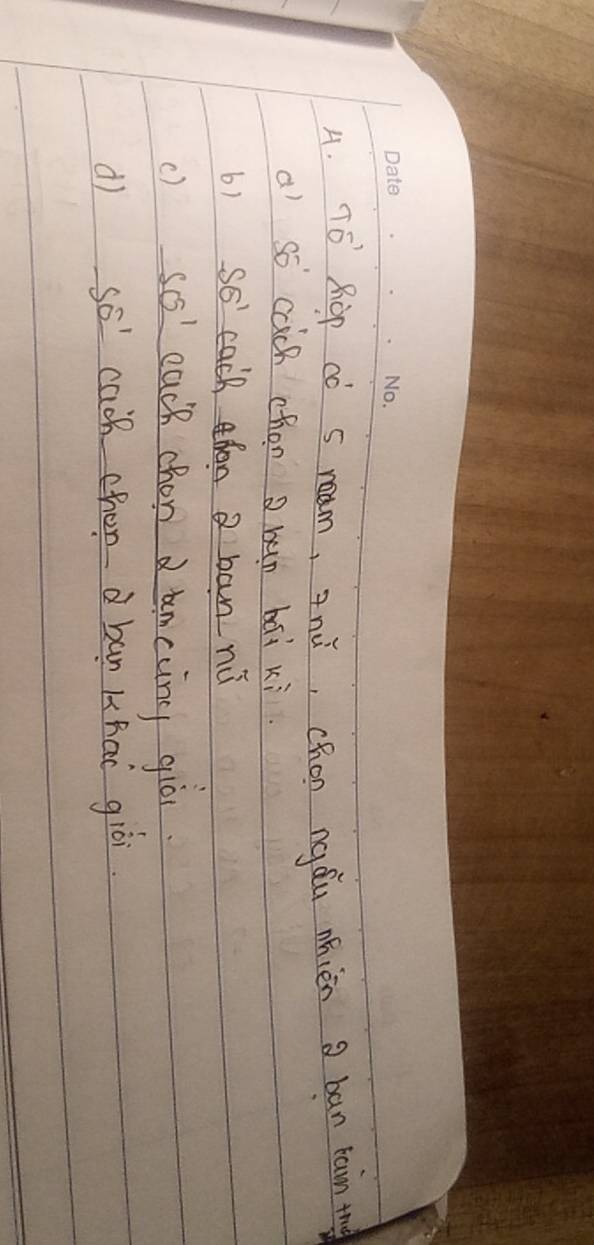 Date . . . No.
4. Tổ hợp có 5 nam, 7 nữ, chọn ngẫu nhiên 2 bạn
a) số cách chọn 2 bạn bất kì.
b) số cách chọn 2 bạn nữ
c) số cách chọn 2 bạn cùng giới.
d) số cách chọn 2 bạn khác giới.